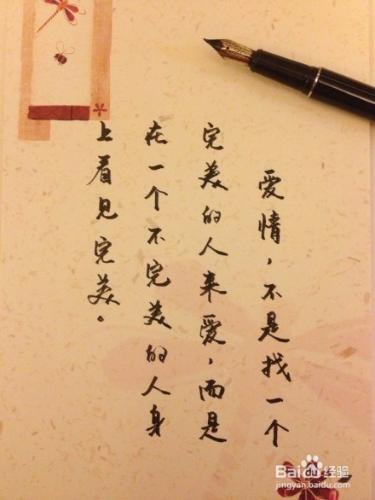 爱情，不是找一个
完美的人来爱，而是
在一个不完美的人身
上看见完美。
Baidu 经验
jingyan.baidu.com